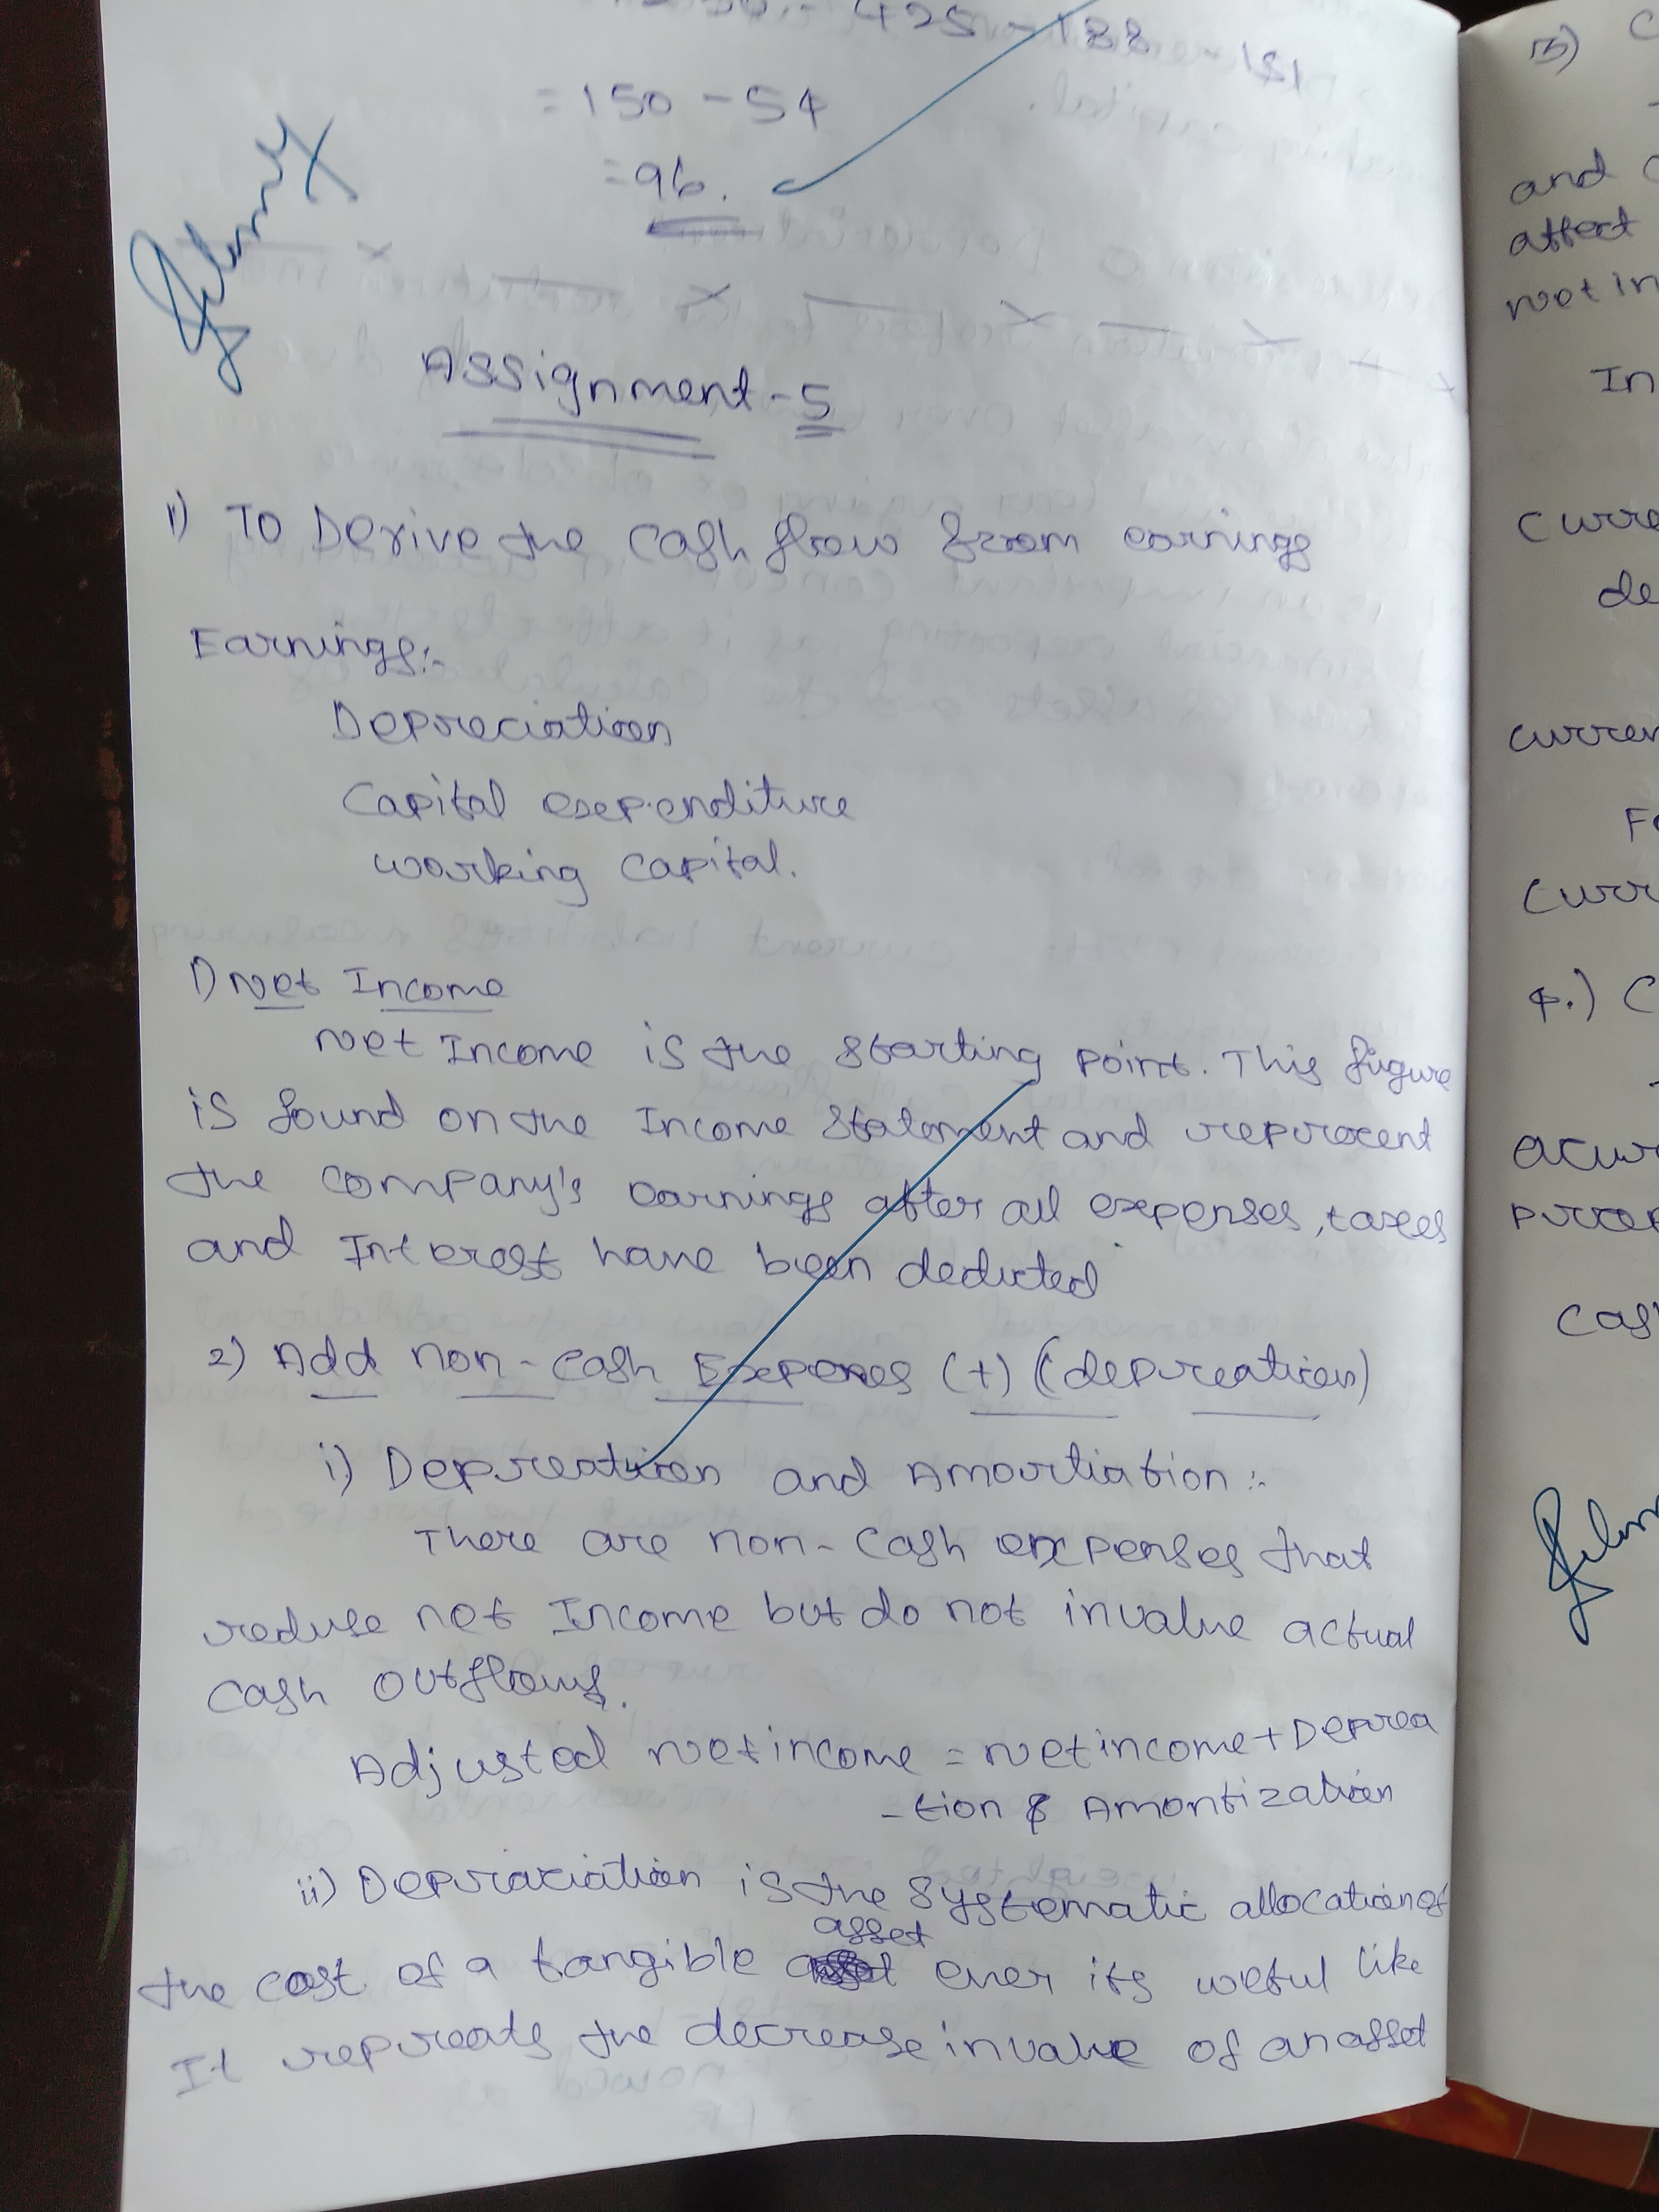 425 - 188 - 151
= 150 - 54
= 96.
Assignment - 5
1) To Derive the cash flow from earnings
Earnings:-
Depreciation
Capital expenditure
working capital.
1) Net Income
Net Income is the starting point. This figure
is found on the Income Statement and reprocent
the company's earnings after all expenses, taxes
and Interest have been deducted
2) Add non-cash Expenes (+) (depreation)
i) Depreation and Amortiation :-
There are non-cash expenses that
reduse net Income but do not invalue actual
cash outflows.
Adjusted net income = net income + Deprea
-tion & Amontization
ii) Depraciation is the systematic allocation of
asset
the cost of a tangible ever its weful like
It repreats the decrease in value of an asset
15) C
and
affect
not in
In
Curre
de
curren
Fo
Curr
4.) C
acur
Cash